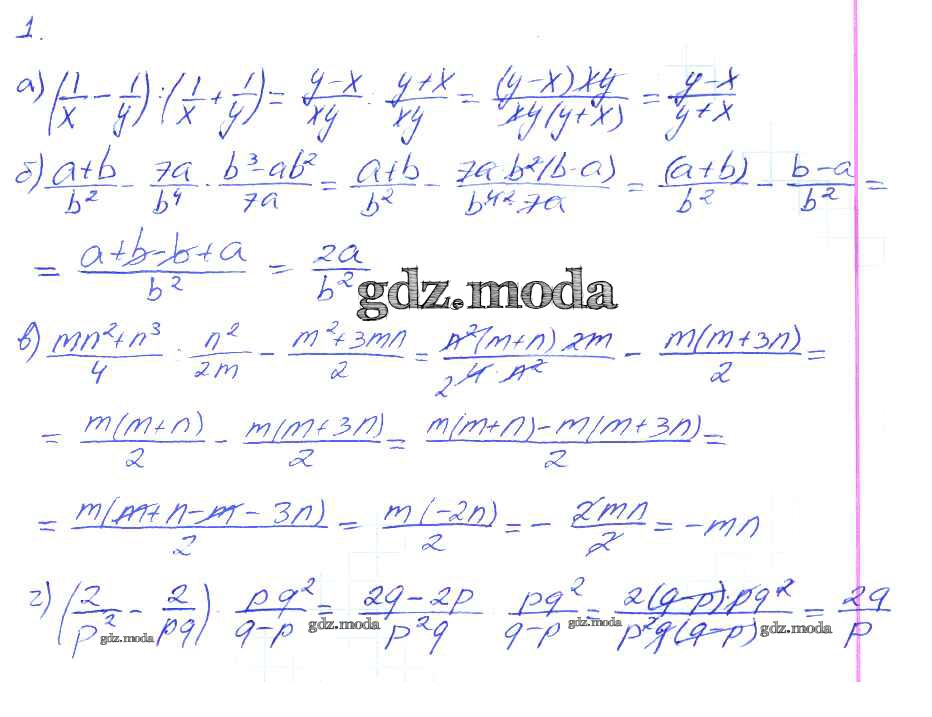 1.
а) (1/x − 1/y) : (1/x + 1/y) = (y−x)/(xy) : (y+x)/(xy) = ((y−x)xy)/(xy(y+x)) = (y−x)/(y+x)
б) (a+b)/b² − 7a/b⁴ · (b³−ab²)/(7a) = (a+b)/b² − (7a·b²(b−a))/(b⁴ ²·7a) = (a+b)/b² − (b−a)/b² =
= (a+b−b+a)/b² = 2a/b²
gdz.moda
в) (mn²+n³)/4 : n²/(2m) − (m²+3mn)/2 = (n²(m+n)2m)/(2 4·n²) − (m(m+3n))/2 =
= (m(m+n))/2 − (m(m+3n))/2 = (m(m+n)−m(m+3n))/2 =
= (m(m+n−m−3n))/2 = (m(−2n))/2 = − (2mn)/2 = −mn
г) (2/p² − 2/(pq)) · (pq²)/(q−p) = (2q−2p)/(p²q) · (pq²)/(q−p) = (2(q−p)·pq²)/(p²q(q−p)) = 2q/p
gdz.moda gdz.moda gdz.moda gdz.moda